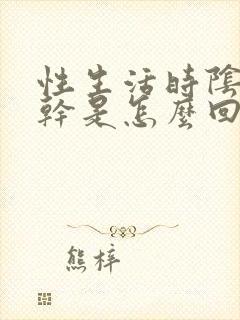 性生活時陰
幹是怎麼回
熊梓